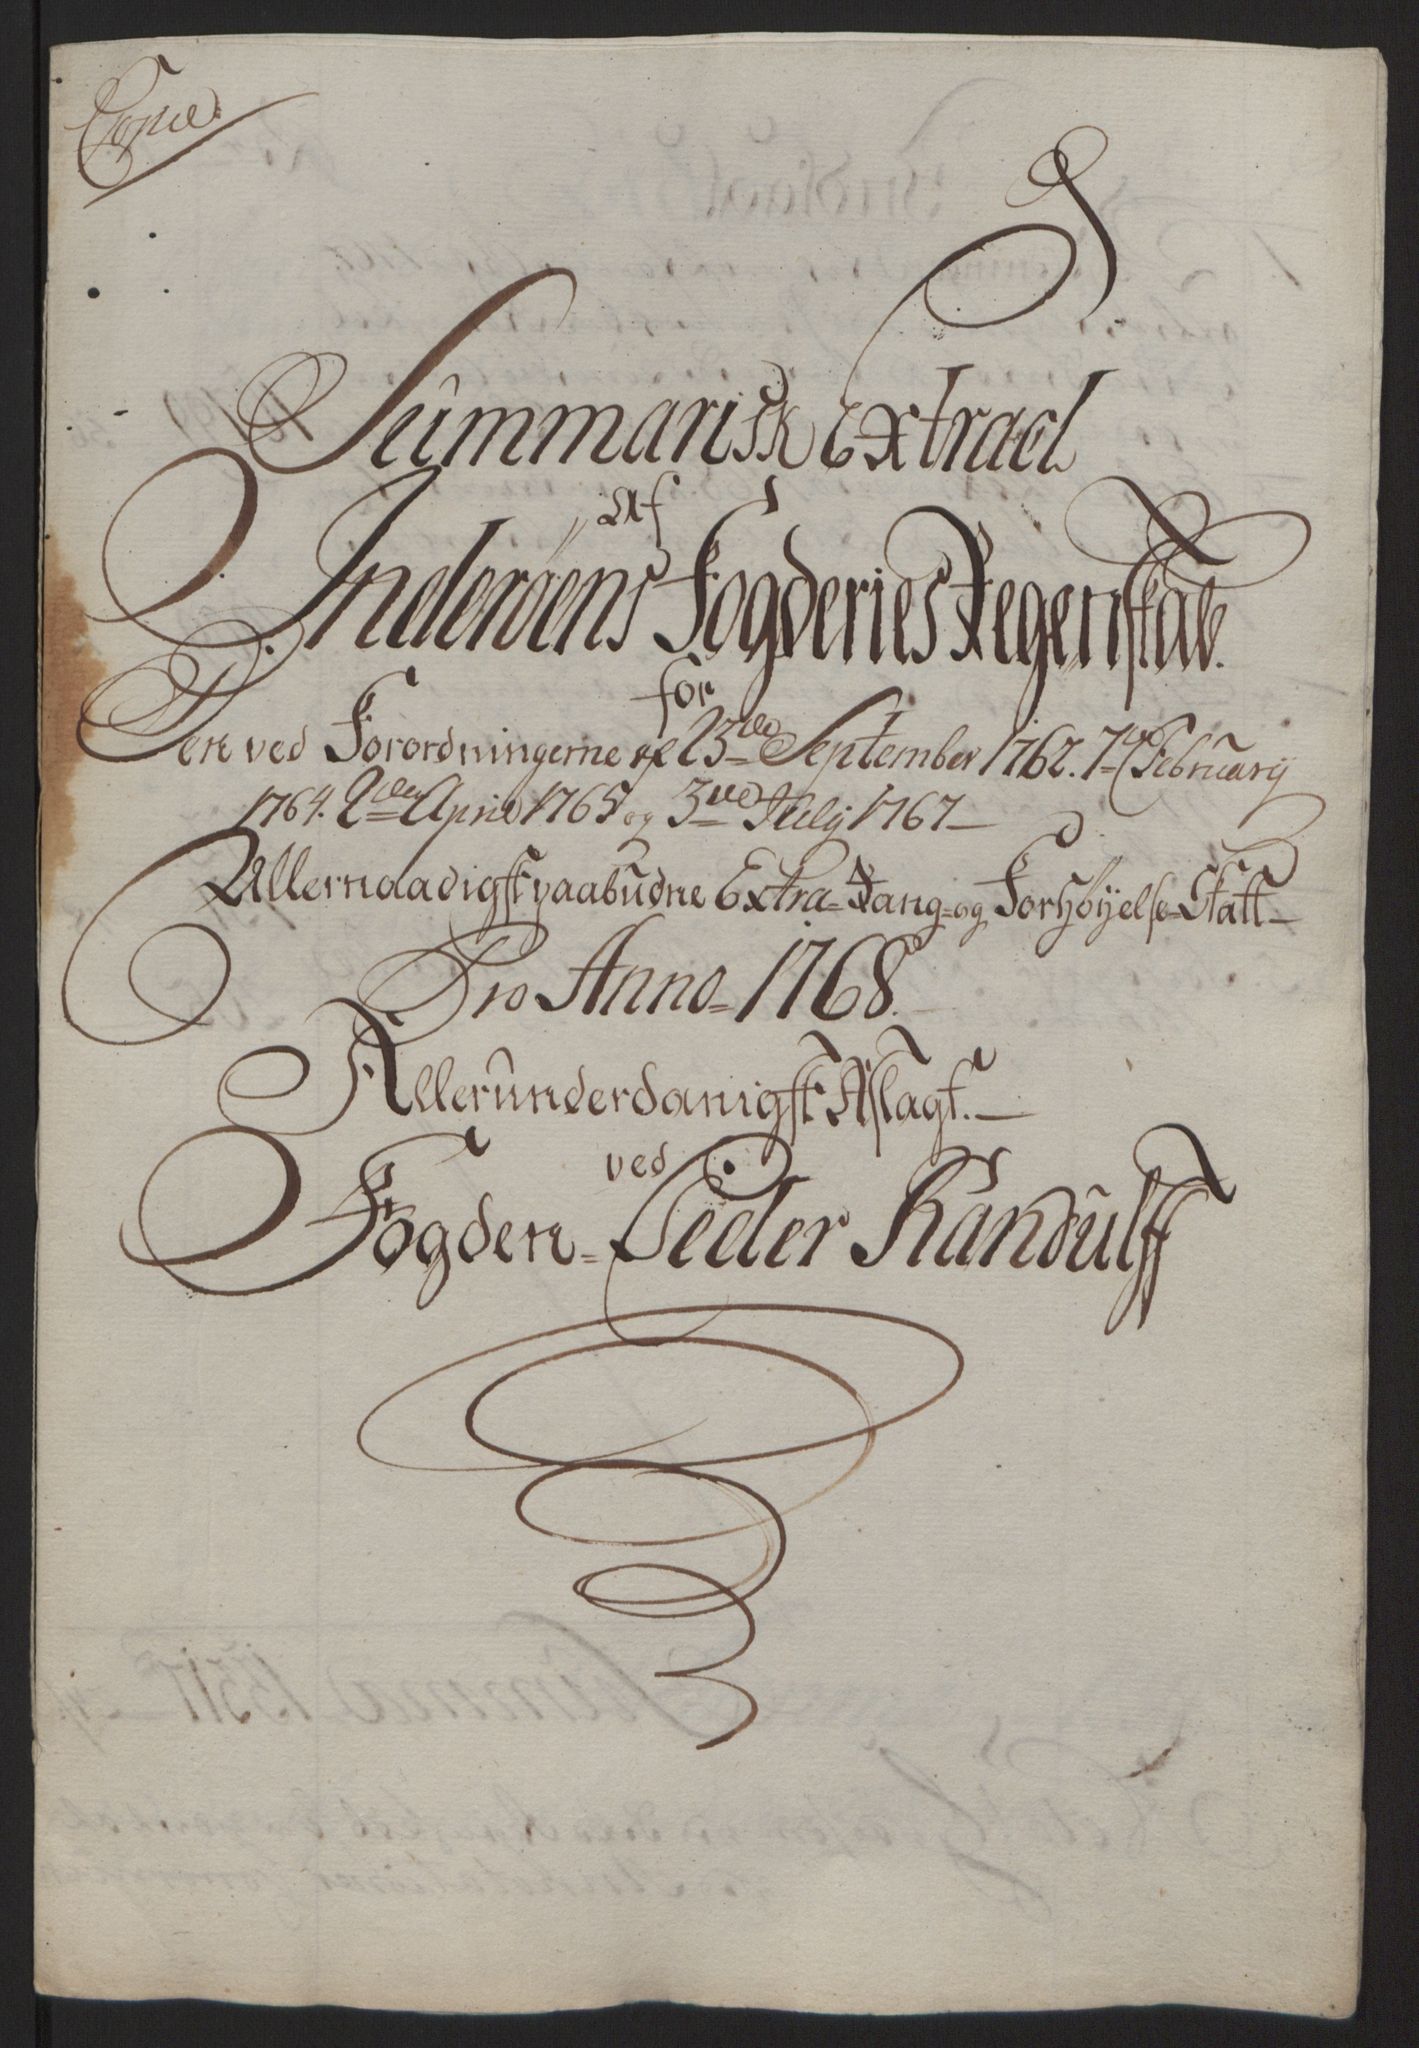 Copie.
Summarisk Extract
Af
Inderöens Fogderies Regenskab.
for
Den ved Forordningerne af 23de September 1762. 7de Februarij
1764. 2den April 1765 og 3die Julij 1767
Allernaadigst paabudne Extra- Rang- og Forhöyelse- Skatt
Pro Anno- 1768.
Allerunderdanigst Aflagt.
ved
Fogden- Peder Randulff